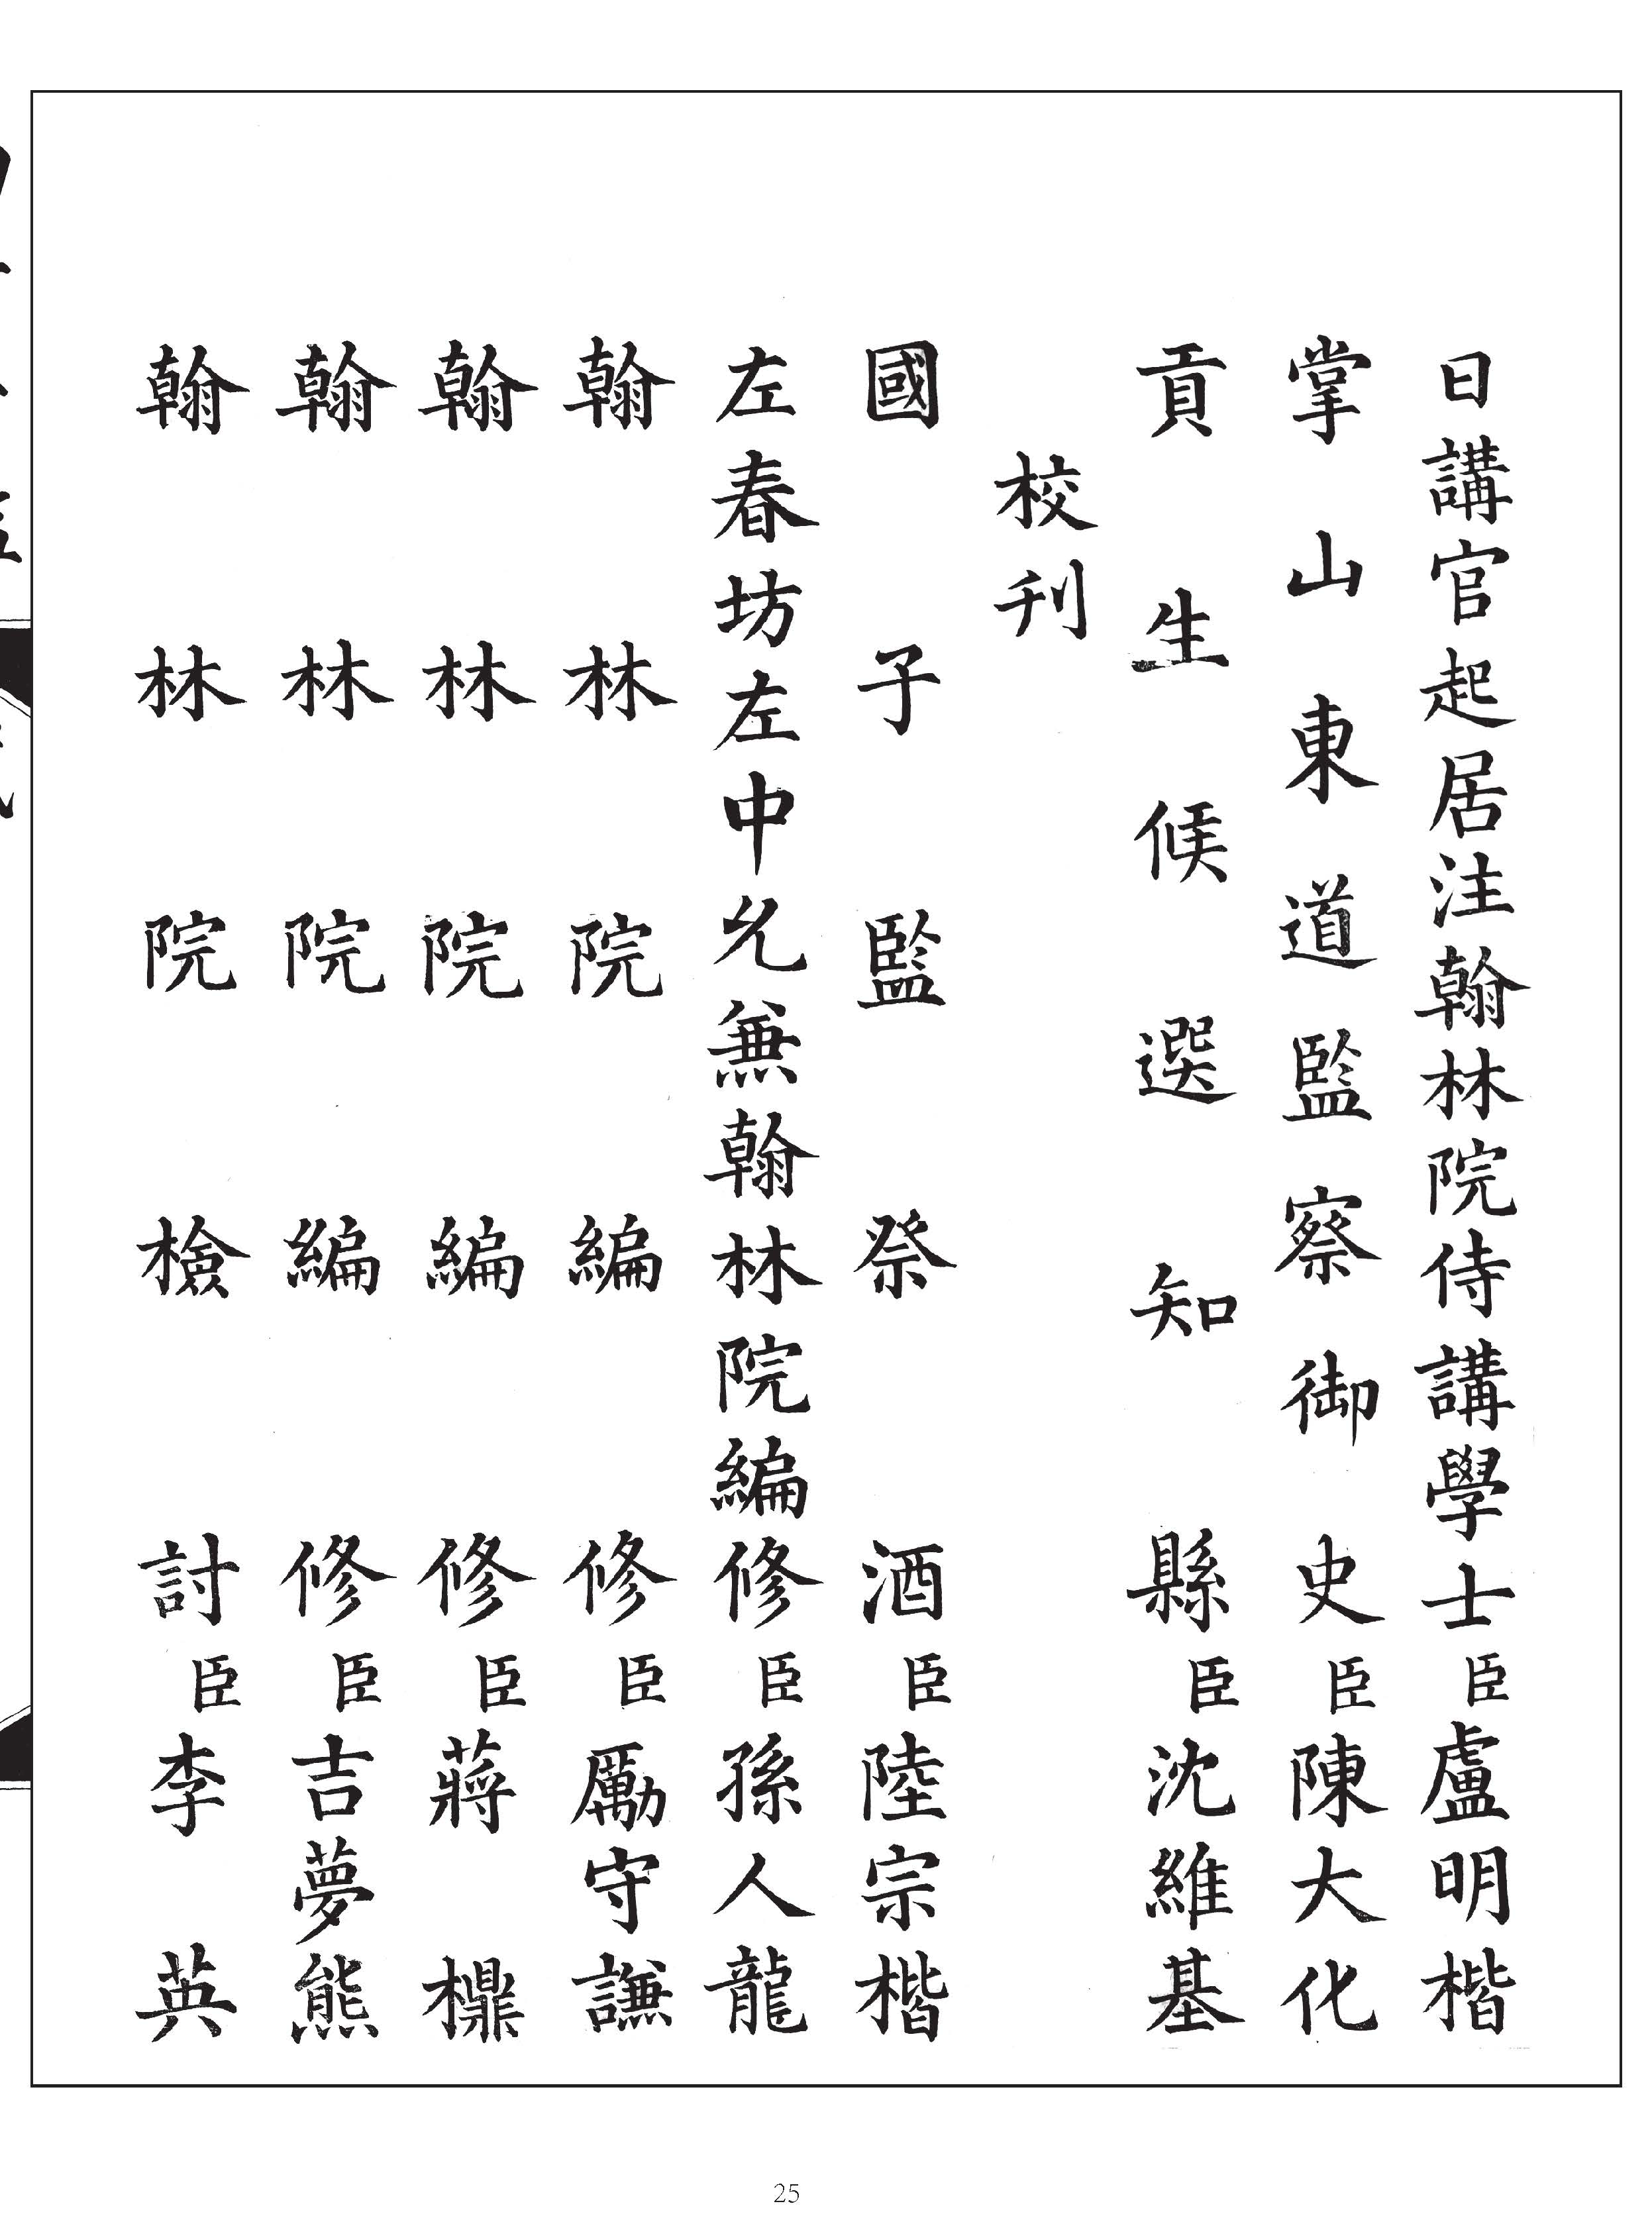 日講官起居注翰林院侍講學士臣盧明楷
掌山東道監察御史臣陳大化
貢生候選知縣臣沈維基
校刊
國子監祭酒臣陸宗楷
左春坊左中允兼翰林院編修臣孫人龍
翰林院編修臣勵守謙
翰林院編修臣蔣檙
翰林院編修臣吉夢熊
翰林院檢討臣李英
25